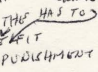 THIS HAS TO
FIT
PUNISHMENT